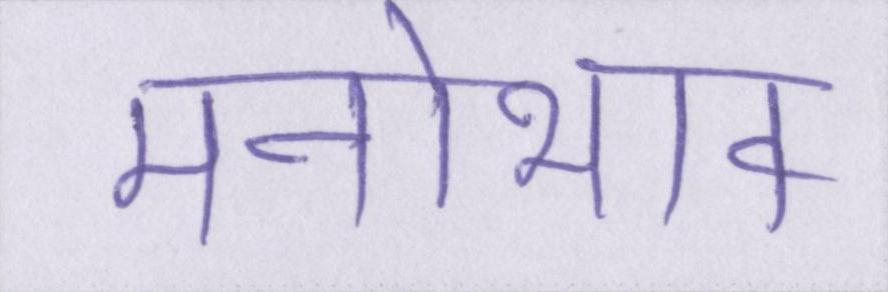 मनोभाव